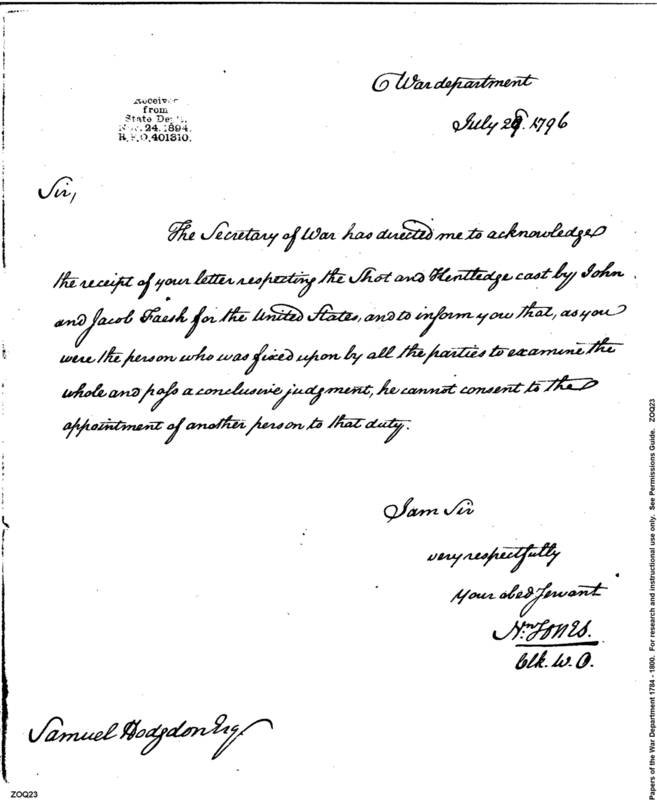 War department
July 29. 1796
Receiv
from
State De
24. 1894.
R. P. O. 401310.
Sir,
The Secretary of War has directed me to acknowledge
the receipt of your letter respecting the Shot and Kentledge cast by John
and Jacob Faesh for the United States, and to inform you that, as you
were the person who was fixed upon by all the parties to examine the
whole and pass a conclusive judgment, he cannot consent to the
appointment of another person to that duty.
I am Sir
very respectfully
Your obed Servant
Jones.
Clk. W. O.
Samuel Hodgdon Esq.
ZOQ23
Papers of the War Department 1784 - 1800. For research and instructional use only. See Permissions Guide. ZOQ23